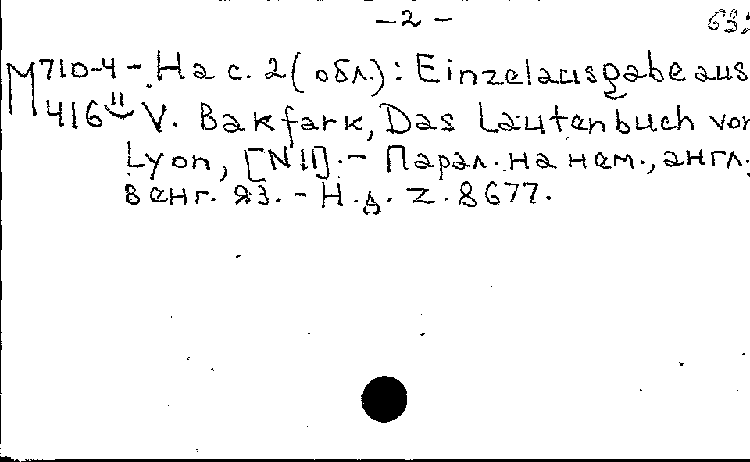 – 2 –
М 710-4 – На с. 2 (обл.): Einzelausgabe aus
416 V. Bakfark, Das Lautenbuch von
Lyon, [N 11]. – Парал. на нем., англ.,
венг. яз. – Н.д. Z. 8677.